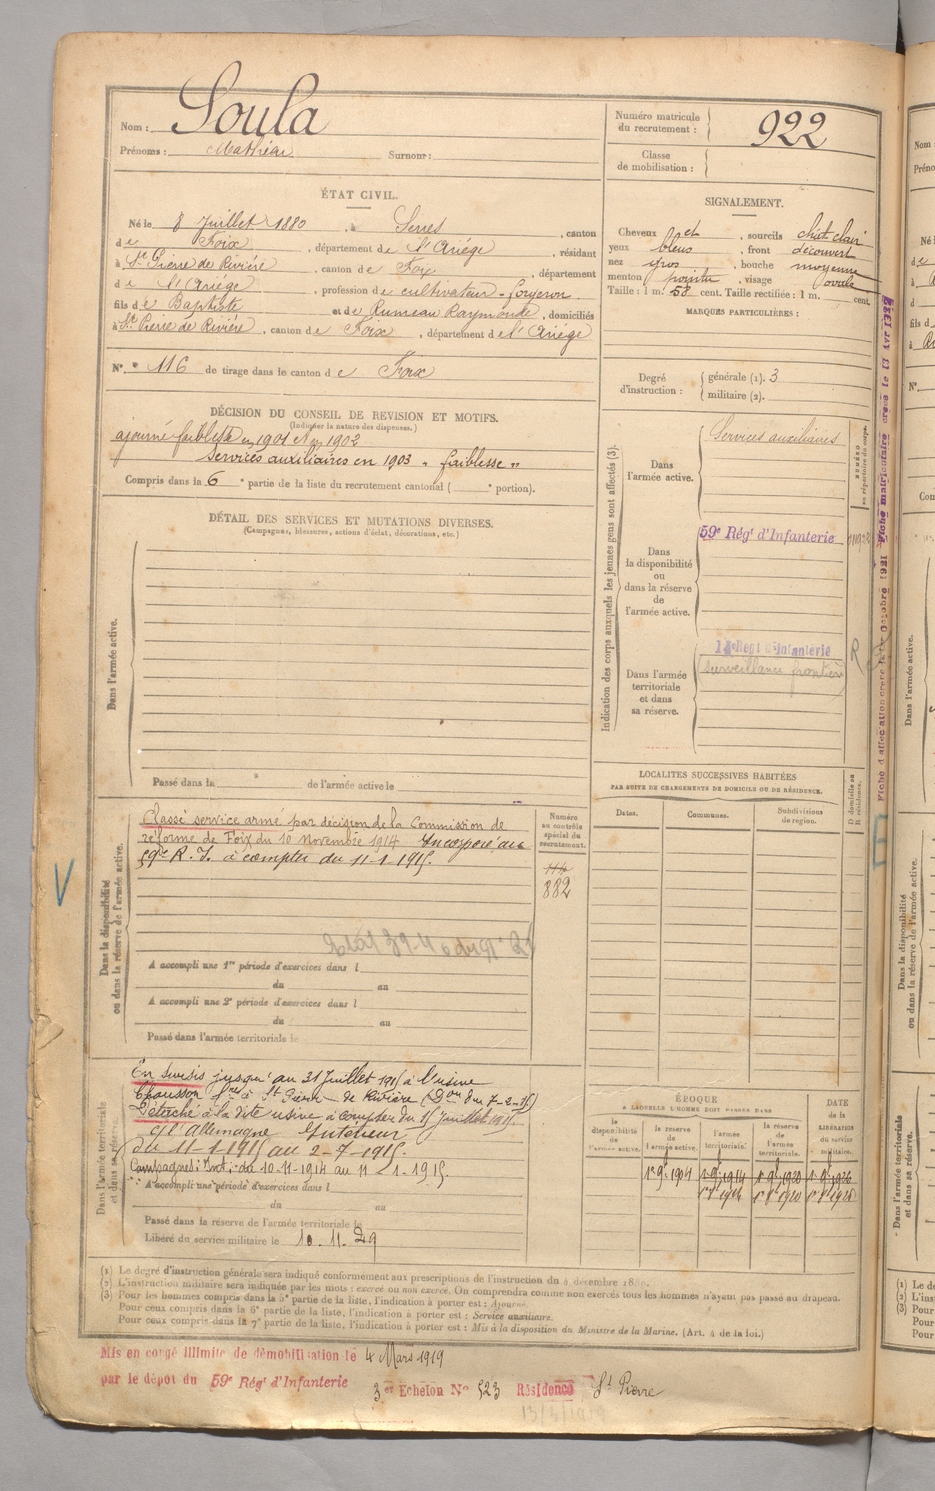 Nom : Soula
Prénoms : Mathieu Surnom :
Numéro matricule du recrutement : 922
Classe de mobilisation :
ÉTAT CIVIL.
Né le 8 Juillet 1880, à Serres, canton
de Foix, département de l'Ariége, résidant
à St Pierre de Rivière, canton de Foix, département
de l'Ariége, profession de cultivateur - forgeron
fils de Baptiste et de Rumeau Raymonde, domiciliés
à St Pierre de Rivière, canton de Foix, département de l'Ariége
N° 116 de tirage dans le canton de Foix
SIGNALEMENT.
Cheveux et, sourcils chât. clair
yeux bleus, front découvert
nez gros, bouche moyenne
menton pointu, visage ovale
Taille : 1 m. 58 cent. Taille rectifiée : 1 m. cent.
MARQUES PARTICULIÈRES :
Degré d'instruction : générale (1). 3
militaire (2).
DÉCISION DU CONSEIL DE REVISION ET MOTIFS.
(Indiquer la nature des dispenses.)
ajourné faiblesse en 1901 et en 1902
Services auxiliaires en 1903 " faiblesse "
Compris dans la 6e partie de la liste du recrutement cantonal ( e portion).
DÉTAIL DES SERVICES ET MUTATIONS DIVERSES.
(Campagnes, blessures, actions d'éclat, décorations, etc.)
Dans l'armée active.
Passé dans la de l'armée active le
Indication des corps auxquels les jeunes gens sont affectés (3).
NUMÉRO au répertoire du corps.
Dans l'armée active.
Services auxiliaires
Dans la disponibilité ou dans la réserve de l'armée active.
59e Régt d'Infanterie
Dans l'armée territoriale et dans sa réserve.
14e Régt d'Infanterie
surveillance frontière
R
LOCALITÉS SUCCESSIVES HABITÉES
PAR SUITE DE CHANGEMENTS DE DOMICILE OU DE RÉSIDENCE.
Dates. Communes. Subdivisions de région. D domicile ou R résidence.
Dans la disponibilité ou dans la réserve de l'armée active.
Classé service armé par décision de la Commission de
réforme de Foix du 10 Novembre 1914 Incorporé au
59e R. I. à compter du 11-1-1915.
Numéro au contrôle spécial du recrutement.
116
882
A accompli une 1re période d'exercices dans l
du au
A accompli une 2e période d'exercices dans l
du au
Passé dans l'armée territoriale le
Dans l'armée territoriale et dans sa réserve.
En sursis jusqu'au 31 Juillet 1915 à l'usine
Chausson à St Pierre de Rivière (Don du 7-2-15)
Détaché à la dite usine à compter du 15 Juillet 1915.
C/ l'Allemagne Intérieur
du 11-1-1915 au 2-7-1915.
Campagnes : Int : du 10-11-1914 au 11-1-1915
A accompli une période d'exercices dans l
du au
Passé dans la réserve de l'armée territoriale le
Libéré du service militaire le 10.11.29
ÉPOQUE
A LAQUELLE L'HOMME DOIT PASSER DANS
la disponibilité de l'armée active.
la réserve de l'armée active.
l'armée territoriale.
la réserve de l'armée territoriale.
DATE de la LIBÉRATION du service militaire.
1er 9bre 1904 1er 9bre 1914 1er 9bre 1920 1er 9bre 1926
(1) Le degré d'instruction générale sera indiqué conformément aux prescriptions de l'instruction du 4 décembre 1889.
(2) L'instruction militaire sera indiquée par les mots : exercé ou non exercé. On comprendra comme non exercés tous les hommes n'ayant pas passé au drapeau.
(3) Pour les hommes compris dans la 5e partie de la liste, l'indication à porter est : Ajourné.
Pour ceux compris dans la 6e partie de la liste, l'indication à porter est : Service auxiliaire.
Pour ceux compris dans la 7e partie de la liste, l'indication à porter est : Mis à la disposition du Ministre de la Marine. (Art. 4 de la loi.)
Mis en congé illimité de démobilisation le 4 Mars 1919
par le dépôt du 59e Régt d'Infanterie 3er Echelon N° 523 Résidence St Pierre